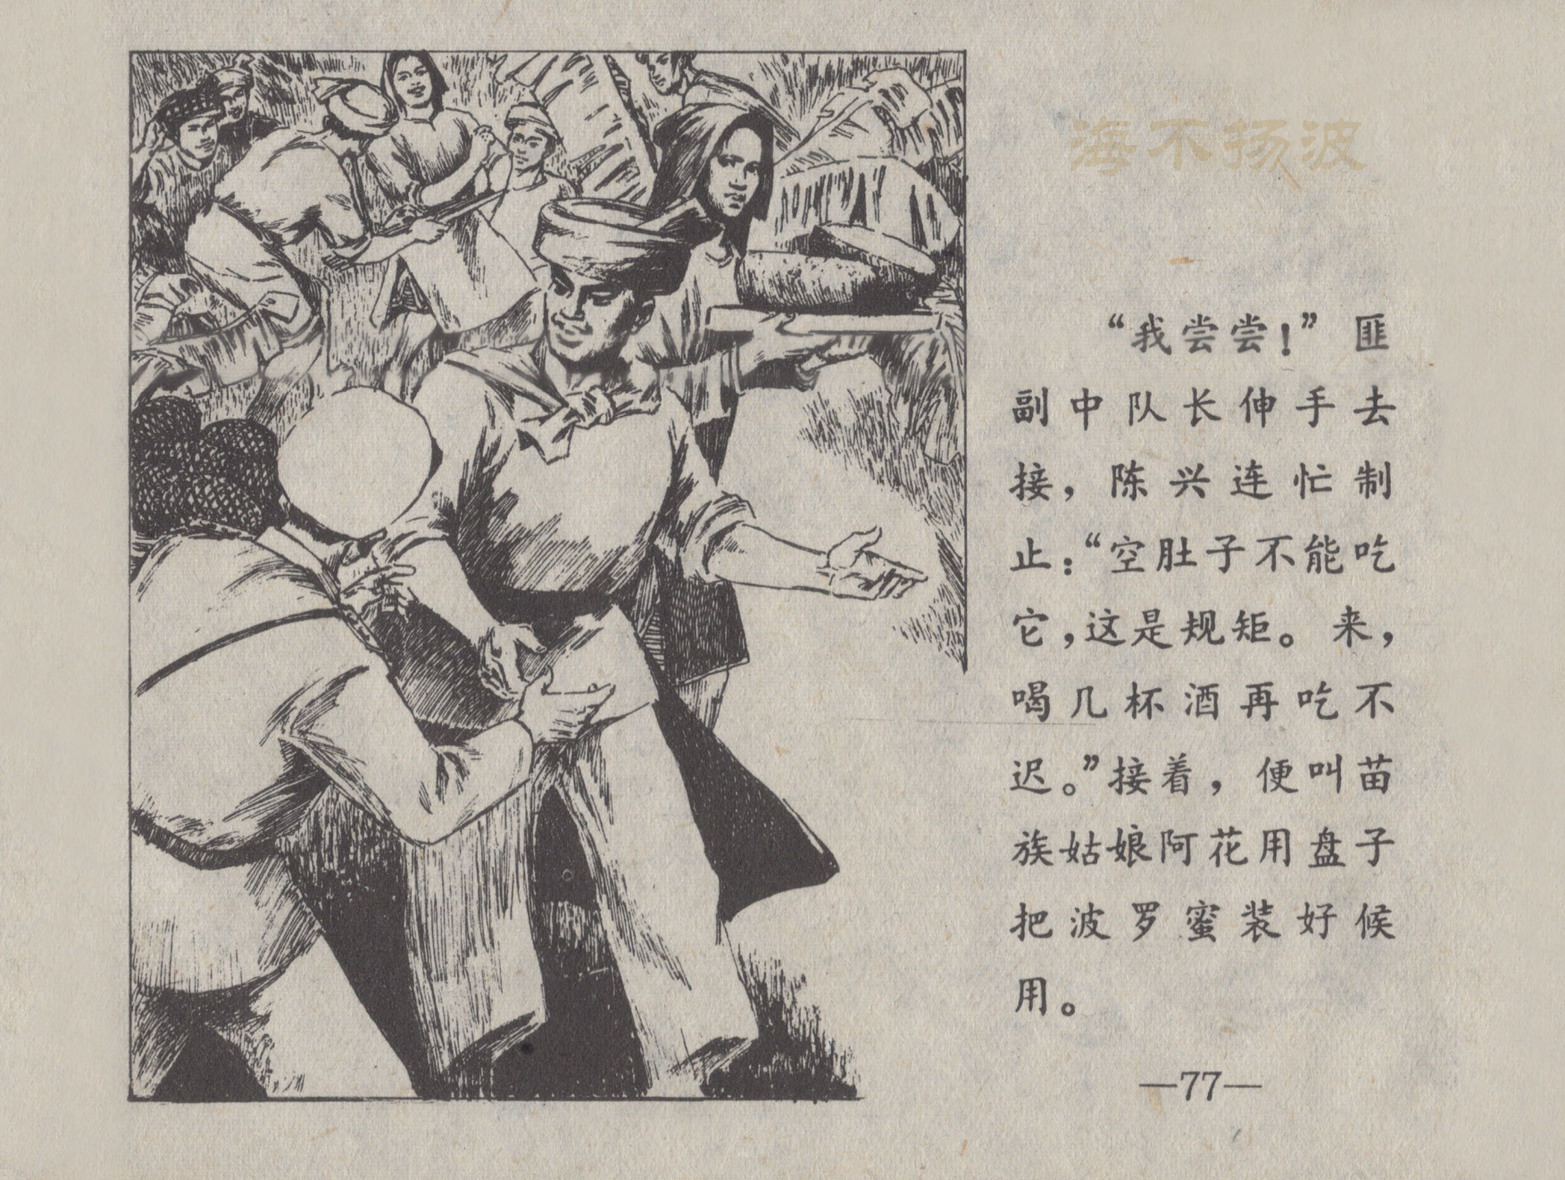 海不扬波
“我尝尝！”匪
副中队长伸手去
接，陈兴连忙制
止：“空肚子不能吃
它，这是规矩。来，
喝几杯酒再吃不
迟。”接着，便叫苗
族姑娘阿花用盘子
把波罗蜜装好候
用。
—77—